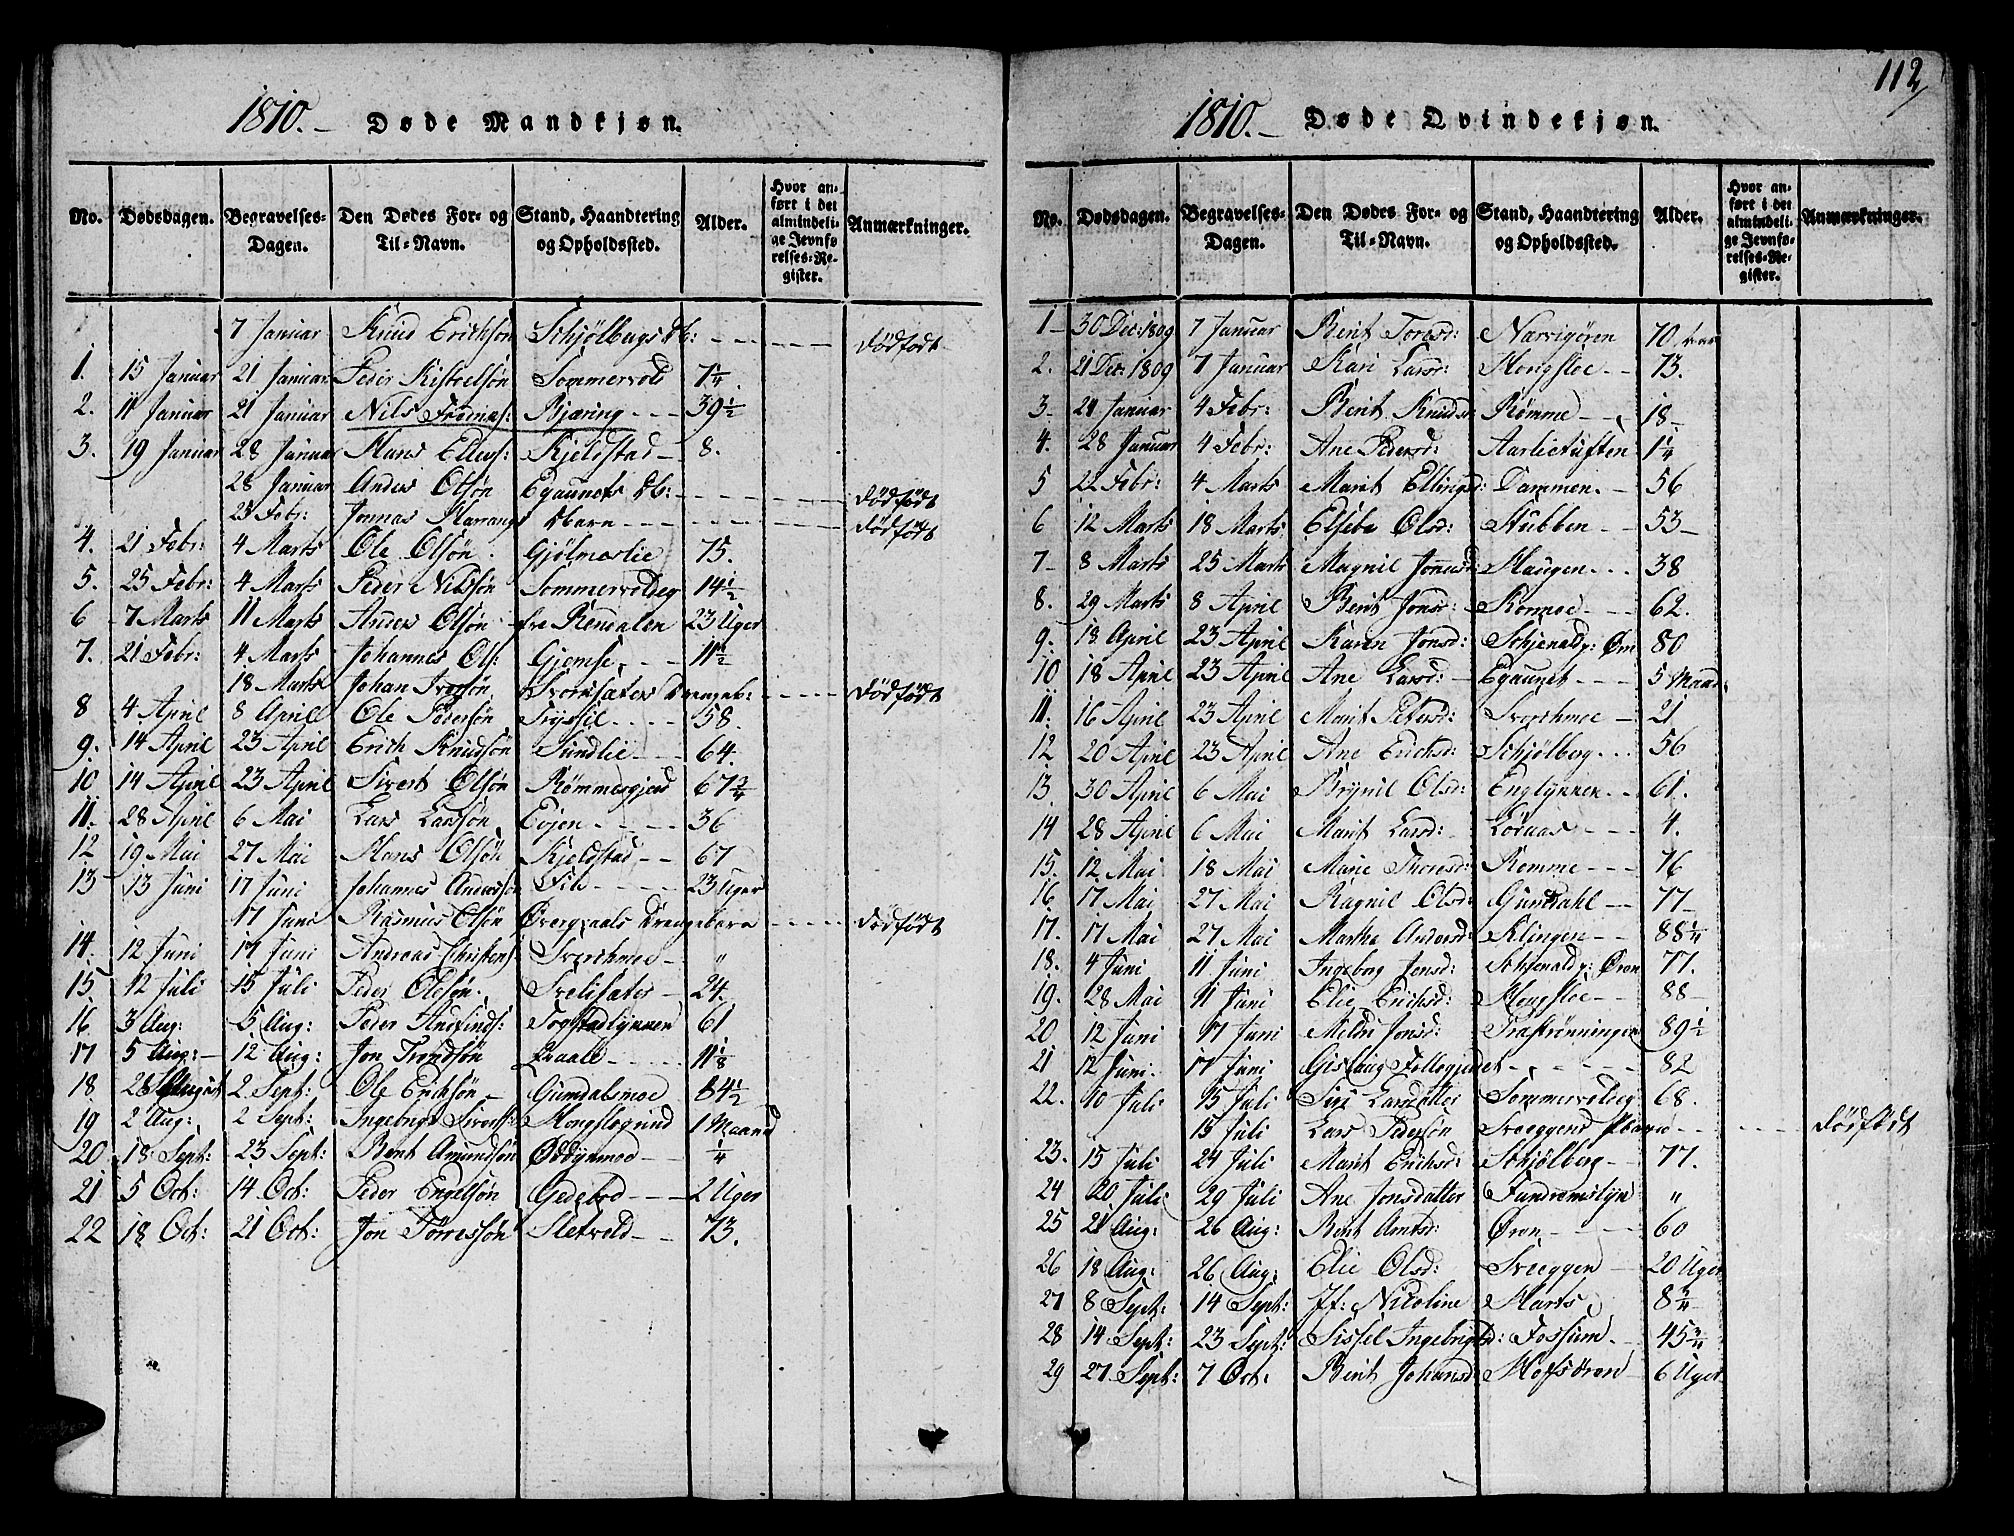 112
1810. Døde Mandkjøn.
No. Dødsdagen. Begravelses-Dagen. Den Dødes For- og Til-Navn. Stand, Haandtering og Opholdssted. Alder. Hvor anført i det almindelige Jevnførelses-Register. Anmærkninger.
7 Januar Knud Erichsøn Schjølbergs Db: - - - Dødfødt
1. 15 Januar 21 Januar Peder Kistelsøn Sommervold 7 1/4.
2. 11 Januar 21 Januar Nils Bjæring - - - 39 1/2
3. 19 Januar 28 Januar Hans Ellevs: Kjeldstad - 8.
28 Januar Anders Olsøn Egaunets Db: - - - Dødfødt
25 Febr: Jonnas Dbarn - - - Dødfødt
4. 21 Febr: 4 Marts Ole Olsøn. Gjølmeslie 75.
5. 25 Febr: 4 Marts Peder Nilsøn Sommervoldeg 14 1/2
6 7 Marts 11 Marts Anders Olsøn fra Rendalen 23 Uger
7. 21 Febr: 4 Marts Johannes Ols: Gjemse, - - 11 1/2
18 Marts Johan Iversøn Svorksæters Drengeb: - - - Dødfødt
8 4 April 8 April Ole Pedersøn Tryssil - - - - 58.
9. 14 April 23 April Erich Knudsøn Sundlie - - 64.
10 14 April 23 April Sivert Olsøn Rømmesgjerd 67 3/4
11. 28 April 6 Mai Lars Larsøn Evjen - - - - 36
12 19 Mai 27 Mai Hans Olsøn Kjeldstad - - 67
13 13 Juni 17 Juni Johannes Andersøn Lil - - - 23 Uger
17 Juni Rasmus Olsøn Øvergaals Drengebarn - - - Dødfødt
14. 12 Juni 17 Juni Andreas Christens: Svorchmoe - "
15 12 Juli 15 Juli Peder Olesøn. 24.
16 3 Aug: 5 Aug: Peder Andfinds: Togstadlynnen 61
17 5 Aug: - 12 Aug: Jon Trondsøn Qvaale - - - 11 1/8
18 28 August 2 Sept: Ole Erichsøn - Gumdalsmoe - 84 1/2
19 2 Aug: 2 Sept: Ingebrigt Siverts: Hongslogrind 1 Maaned
20 18 Sept: 23 Sept: Berit Amundsøn Oddynmoe - - 1/4
21 5 Oct: 14 Oct: Peder Engelsøn Gedebod - - - 2 Uger
22 18 Oct: 21 Oct: Jon Tørressøn Sletvold - - 73.
1810. Døde Qvindekjøn.
No. Dødsdagen. Begravelses-Dagen. Den Dødes For- og Til-Navn. Stand, Haandtering og Opholdssted. Alder. Hvor anført i det almindelige Jevnførelses-Register. Anmærkninger.
1 - 30 Dec: 1809 7 Januar Berit Toresd: Narvigøren 70
2. 21 Dec: 1809 7 Januar Kari Larsd: Hongsloe - - 73.
3 - 24 Januar 4 Febr: Berit Knuds: Rømme - - - 18 -
4. 28 Januar 4 Febr: Ane Pedersd: Aarlietuften 1 1/4
5 22 Febr: 4 Marts Marit Ellingsd: Dammen. - 56
6 12 Marts 18 Marts Elsebe Olsd: Stubben - - 53 -
7 - 8 Marts 25 Marts Magnil Jonnsd: Haugen - - - 38
8. 29 Marts 8 April Berit Jonsd: Romoe - - - 62.
9. 18 April 23 April Karen Jonsd: Schjenaldy: Øren 80
10 18 April 23 April Ane Larsd: - Egaunet - - - 5 Maan:
11. 16 April 23 April Marit Petersd: Svorchmoe - 21
12 20 April 23 April Ane Erichsd: Schjølberg - - - 56
13. 30 April 6 Mai Brynil Olsd: Englynnen - - 61.
14 28 April 6 Mai Marit Larsd: - Loraas - - - - 4.
15. 12 Mai 18 Mai Marie Thoresd: Romme - - - 76
16 17 Mai 27 Mai Ragnil Olsd: Gumdahl - - 77
17. 17 Mai 27 Mai Marthe Andersd: Klingen - - 88 1/4
18. 4 Juni 11 Juni Ingeborg Jensd: Schjenaldy: Øren 77.
19. 28 Mai 11 Juni Elie Erichsd: Hongsloe - - 88 -
20 12 Juni 17 Juni Mildri Jonsd: Trastrønningen 89 1/2
21 12 Juni. 17 Juni Gislaug Follegjerdet - - - - 82
22. 10 Juli 15 Juli Siri Larsdatter Sommervoldeg: 68.
15 Juli Lars Pedersøn Sveeggens Pbarn - - - Dødfødt
23. 15 Juli 24 Juli Marit Erichsd: Schjølberg - - 77.
24 20 Juli 29 Juli Ane Jonsdatter "
25 21 Aug: 26 Aug: Berit Arntsd: Øren - - - - 60
26 18 Aug: 26 Aug: Elie Olsd: Sveeggen - 20 Uger
27 8 Sept: 14 Sept: Jf: Nicoline Harts, 8 3/4
28 14 Sept: 23 Sept: Sissel Ingebrigtsd: Fossum - 45 3/4
29 27 Sept: 7 Oct: Berit Johansd: Hofsøren 6 Uger